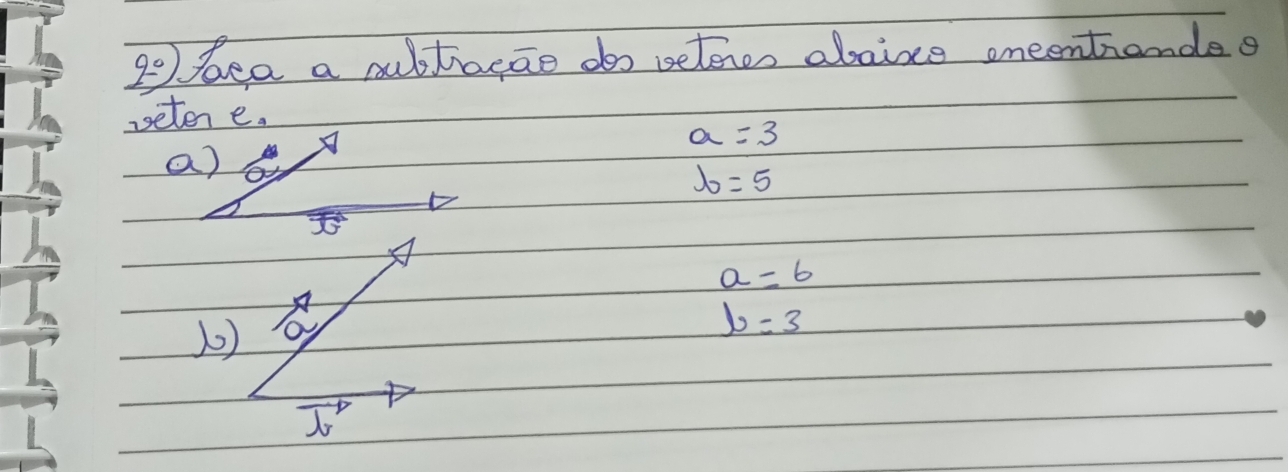 2º) Faça a subtração dos vetores abaixo encontrando o
vetor c.
a) a
a = 3
b
b = 5
a = 6
b) a
b = 3
b